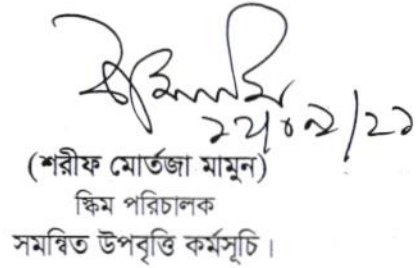 (শরীফ মোর্তজা মামুন)
স্কিম পরিচালক
সমন্বিত উপবৃত্তি কর্মসূচি।